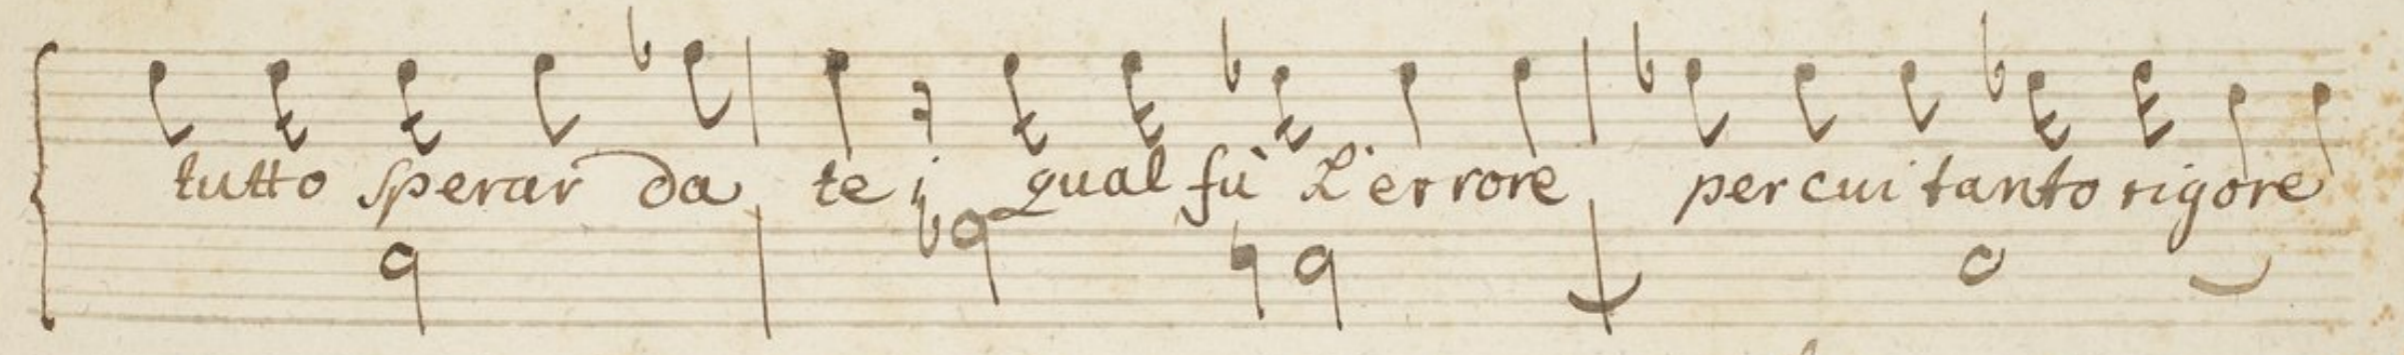 tutto sperar da te; qual fù L'errore per cui tanto rigore